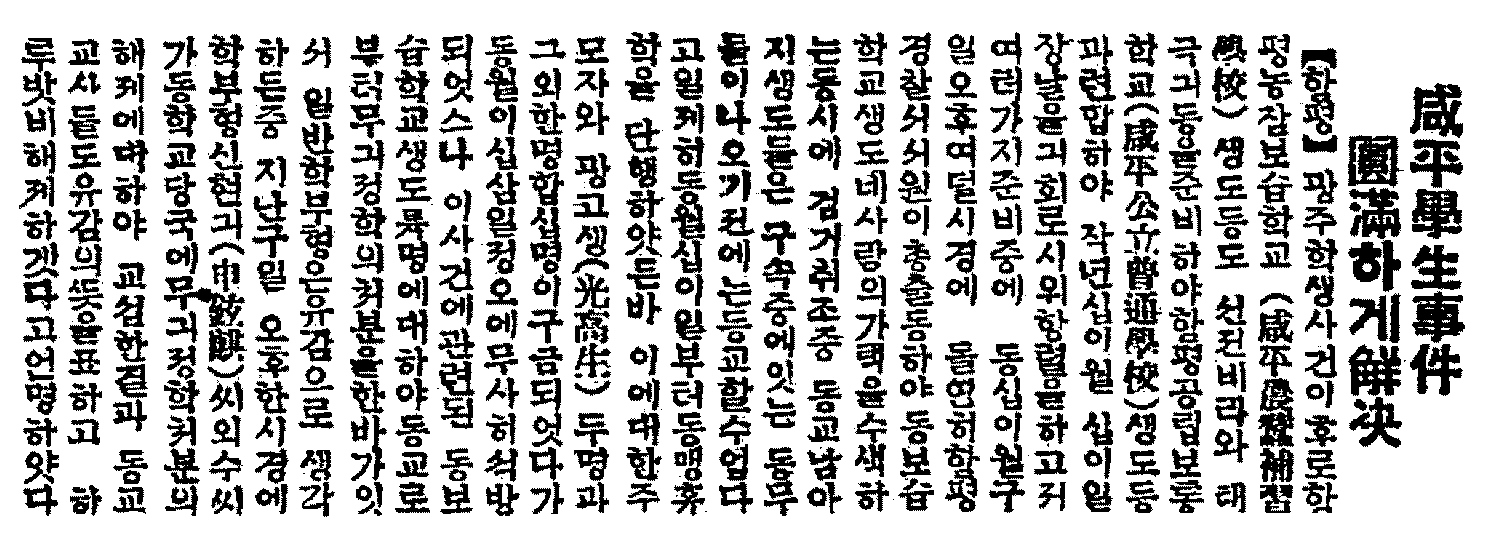 咸平學生事件
圓滿하게解决
【함평】 광주학생사건이후로함
평농잠보습학교 (咸平農蠶補習
學校) 생도등도 선전비라와 태
극긔등을준비하야함평공립보통
학교(咸平公立普通學校)생도등
과련합하야 작년십이월 십이일
장날을긔회로시위행렬을하고저
여러가지준비중에 동십이월구
일오후여덜시경에 돌연히함평
경찰서서원이총출동하야 동보습
학교생도네사람의가택을수색하
는동시에 검거취조중 동교남아
지생도들은 구속중에잇는 동무
들이나오기전에는등교할수업다
고일제히동월십이일부터동맹휴
학을 단행하얏든바 이에대한주
모자와 광고생(光高生) 두명과
그외한명합십명이구금되엇다가
동월이십삼일정오에무사히석방
되엇스나 이사건에관련된 동보
습학교생도륙명에대하야동교로
부터무긔정학의처분을한바가잇
서 일반학부형은유감으로 생각
하든중 지난구일 오후한시경에
학부형신현긔(申鉉麒)씨외수씨
가동학교당국에무긔정학처분의
해제에대하야 교섭한결과 동교
교사들도유감의뜻을표하고 하
루밧비해제하겟다고언명하얏다